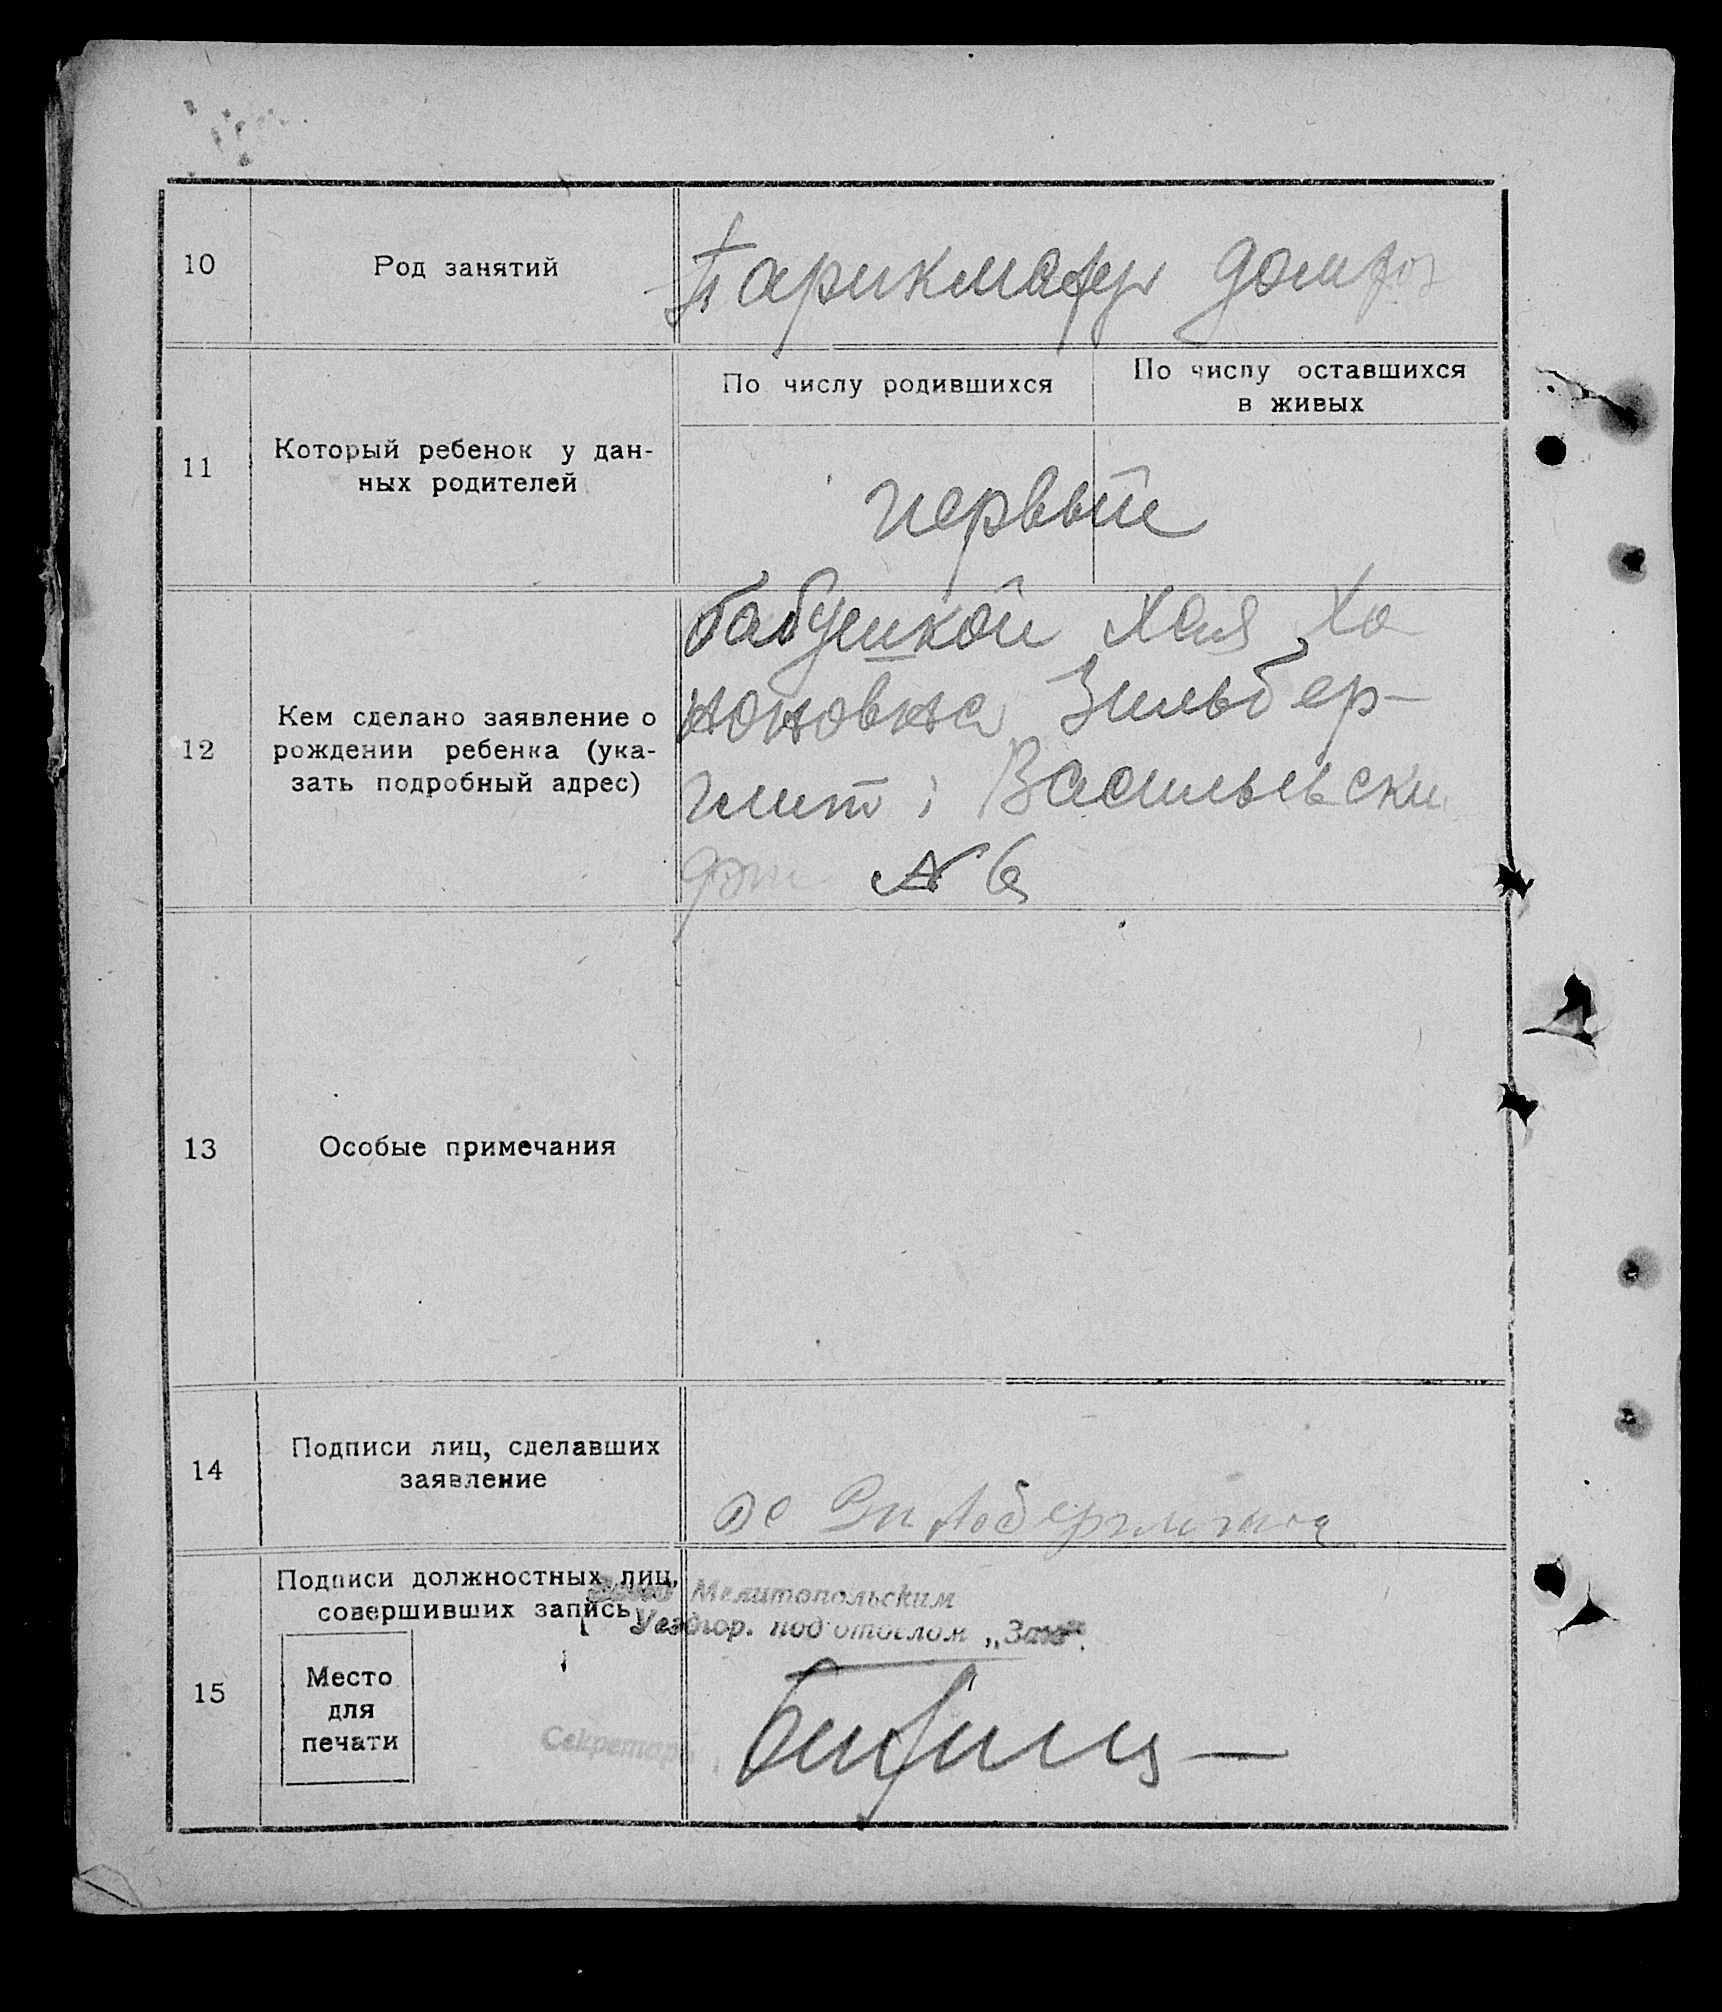 10
Род занятий
Парикмахер домхоз
11
Который ребенок у дан-
ных родителей
По числу родившихся
По числу оставшихся
в живых
первый
12
Кем сделано заявление о
рождении ребенка (ука-
зать подробный адрес)
бабушкой Хая Ха
ноновна Зильбер-
глит; Васильевски
№ 6
13
Особые примечания
14
Подписи лиц, сделавших
заявление
15
Подписи должностных лиц,
совершивших запись
Место
для
печати
Завед Мелитопольским
Уездгор. под'отделом „Загс“.
Секретарь